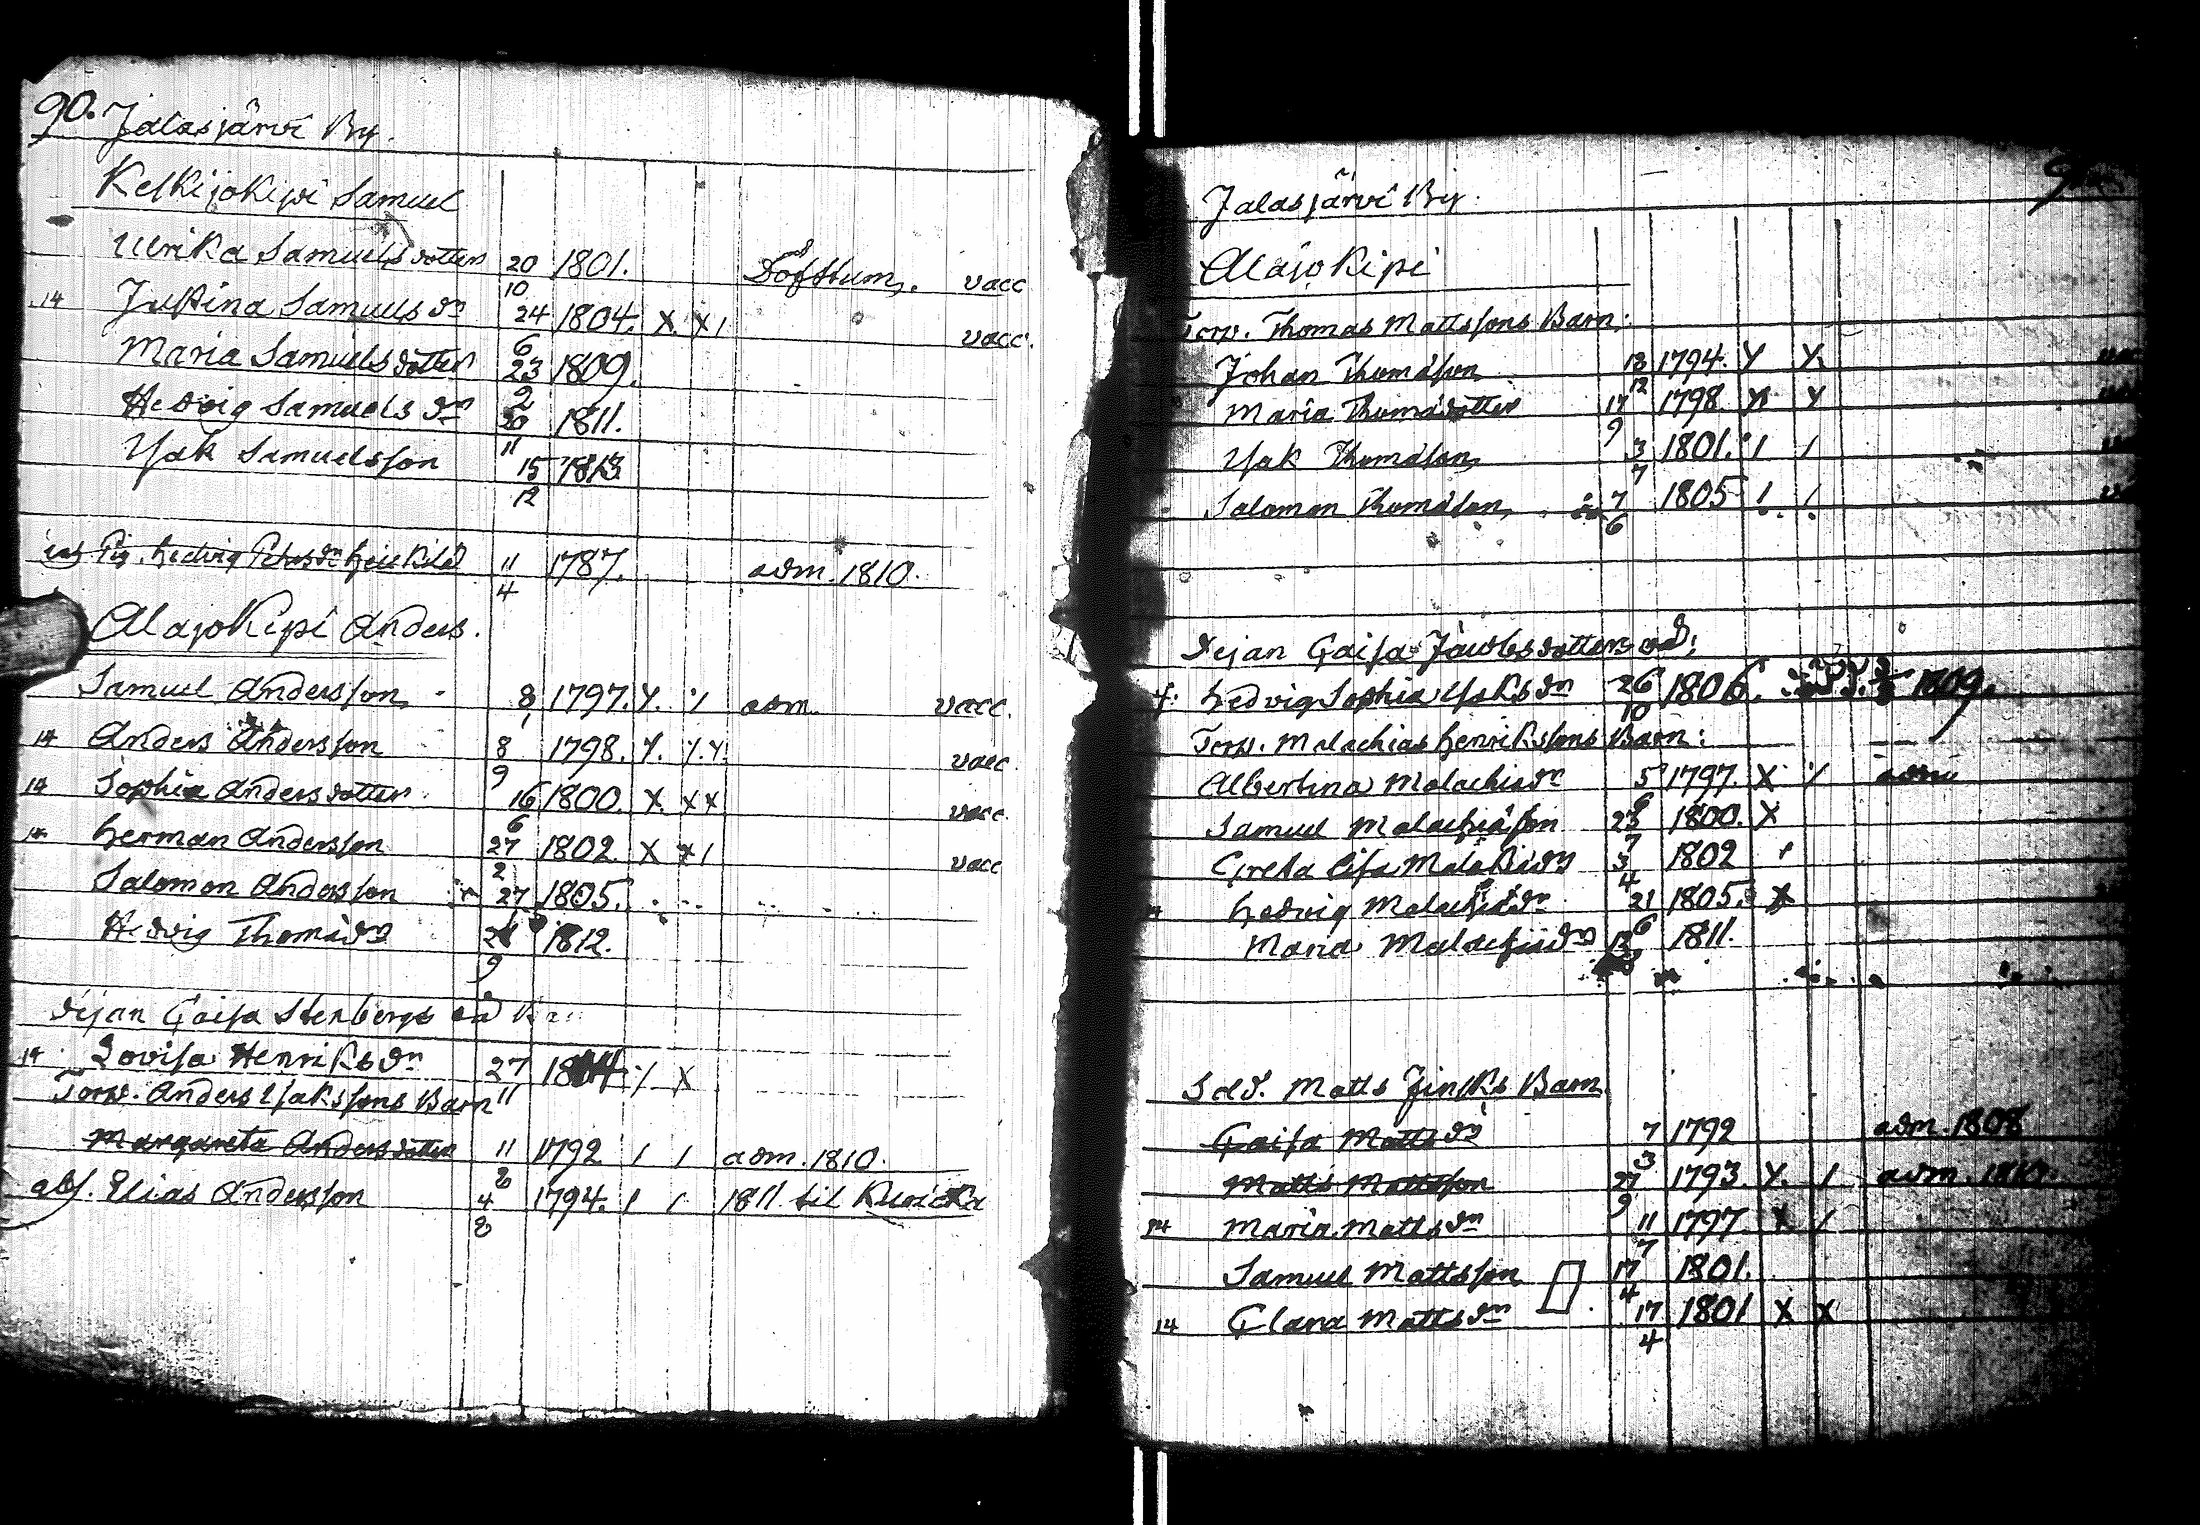 90. Jalasjärvi By.
Keskijokipi Samuel
Ulrika Samuelsdotter 20/10 1801. Döfstum. vacc
14 Justina Samuelsdr 24/6 1804. X. X 1 vacc.
Maria Samuelsdotter 23/2 1809.
Hedvig Samuelsdr 20/11 1811.
Isak Samuelsson 15/12 1813
Pig. Hedvig 11/4 1787. adm. 1810.
Alajokipi Anders.
Samuel Andersson 8/1 1797. Y. 1 adm. vacc.
14 Anders Andersson 8/9 1798. Y. Y. Y. vacc.
14 Sophia Andersdotter 16/6 1800. X. X X vacc.
14 Herman Andersson 27/2 1802. X X 1 vacc
Salomon Andersson 27 1805.
Hedvig Thomædr 9 1812.
Pejan Caisa Stenbergs
14 Lovisa Henriksdr 27/11 X
Torp. Anders Isakssons Barn
Margareta Andersdotter 11/8 1792 1 1 adm. 1810.
abs. Elias Andersson 4/8 1794. 1 1 1811 til
Jalasjärvi By.
Alajokipi
Torp. Thomas Mattssons Barn:
Johan Thomasson 13/12 1794. Y X.
Maria Thomædotter 17/9 1798. Y Y
Isak Thomasson 3/7 1801. 1 1
Salomon Thomasson 7/6 1805 1. 1.
Pejan Caisa Jacobsdotters
Hedvig Sophia Isaksdr 26/10 1806. 1809.
Torp. Malachias Henrikssons Barn:
Albertina Malachiædr 5 1797. X 1
Samuel Malachiasson 23/7 1800. X
Greta Cisa Malakiædr 3/4 1802
Hedvig Malachiædr 21/6 1805. X
Maria Malachiædr 1811.
Sold. Matts Finsks Barn
Caisa Mattsdr 7/3 1792 adm. 1808
Matts Mattsson 27/9 1793. Y. 1 adm.
14 Maria Mattsdr 11/7 1797. X 1
Samuel Mattsson 17/4 1801.
14 Clara Mattsdr 17/4 1801 X X